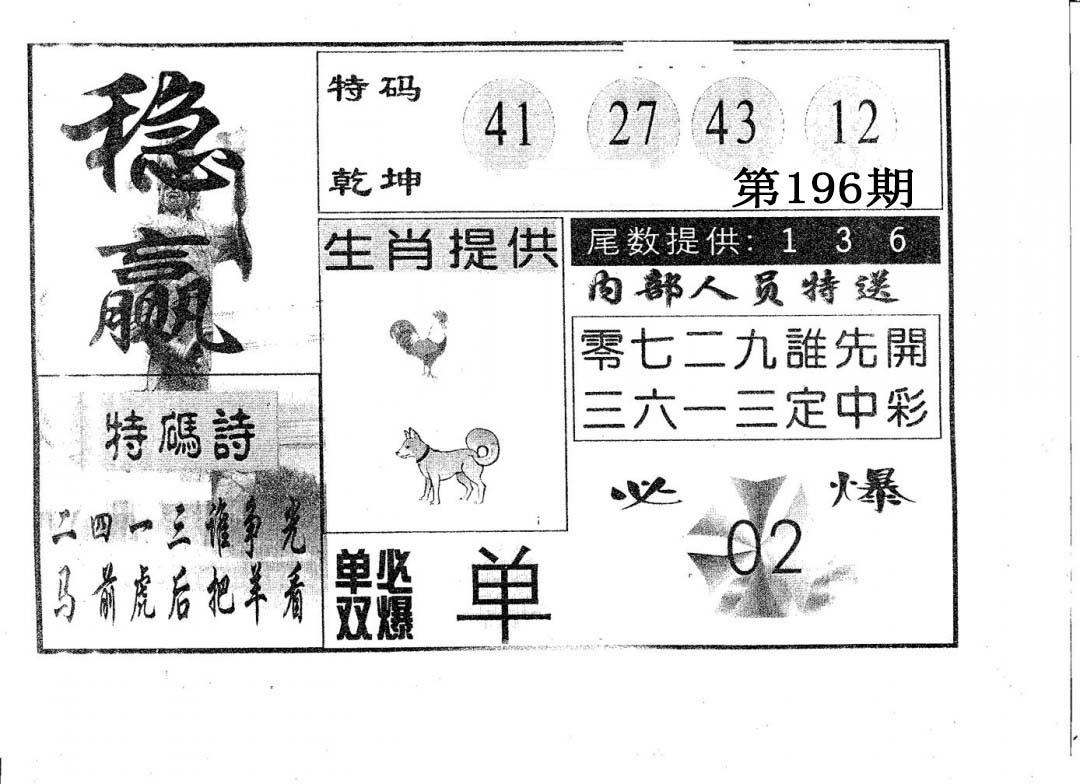 稳
赢
特码
41 27 43 12
乾坤
第196期
生肖提供
尾数提供: 1 3 6
内部人员特送
零七二九誰先開
三六一三定中彩
特碼詩
二四一三谁争光
马前虎后把羊看
必爆
02
单双
必爆
单